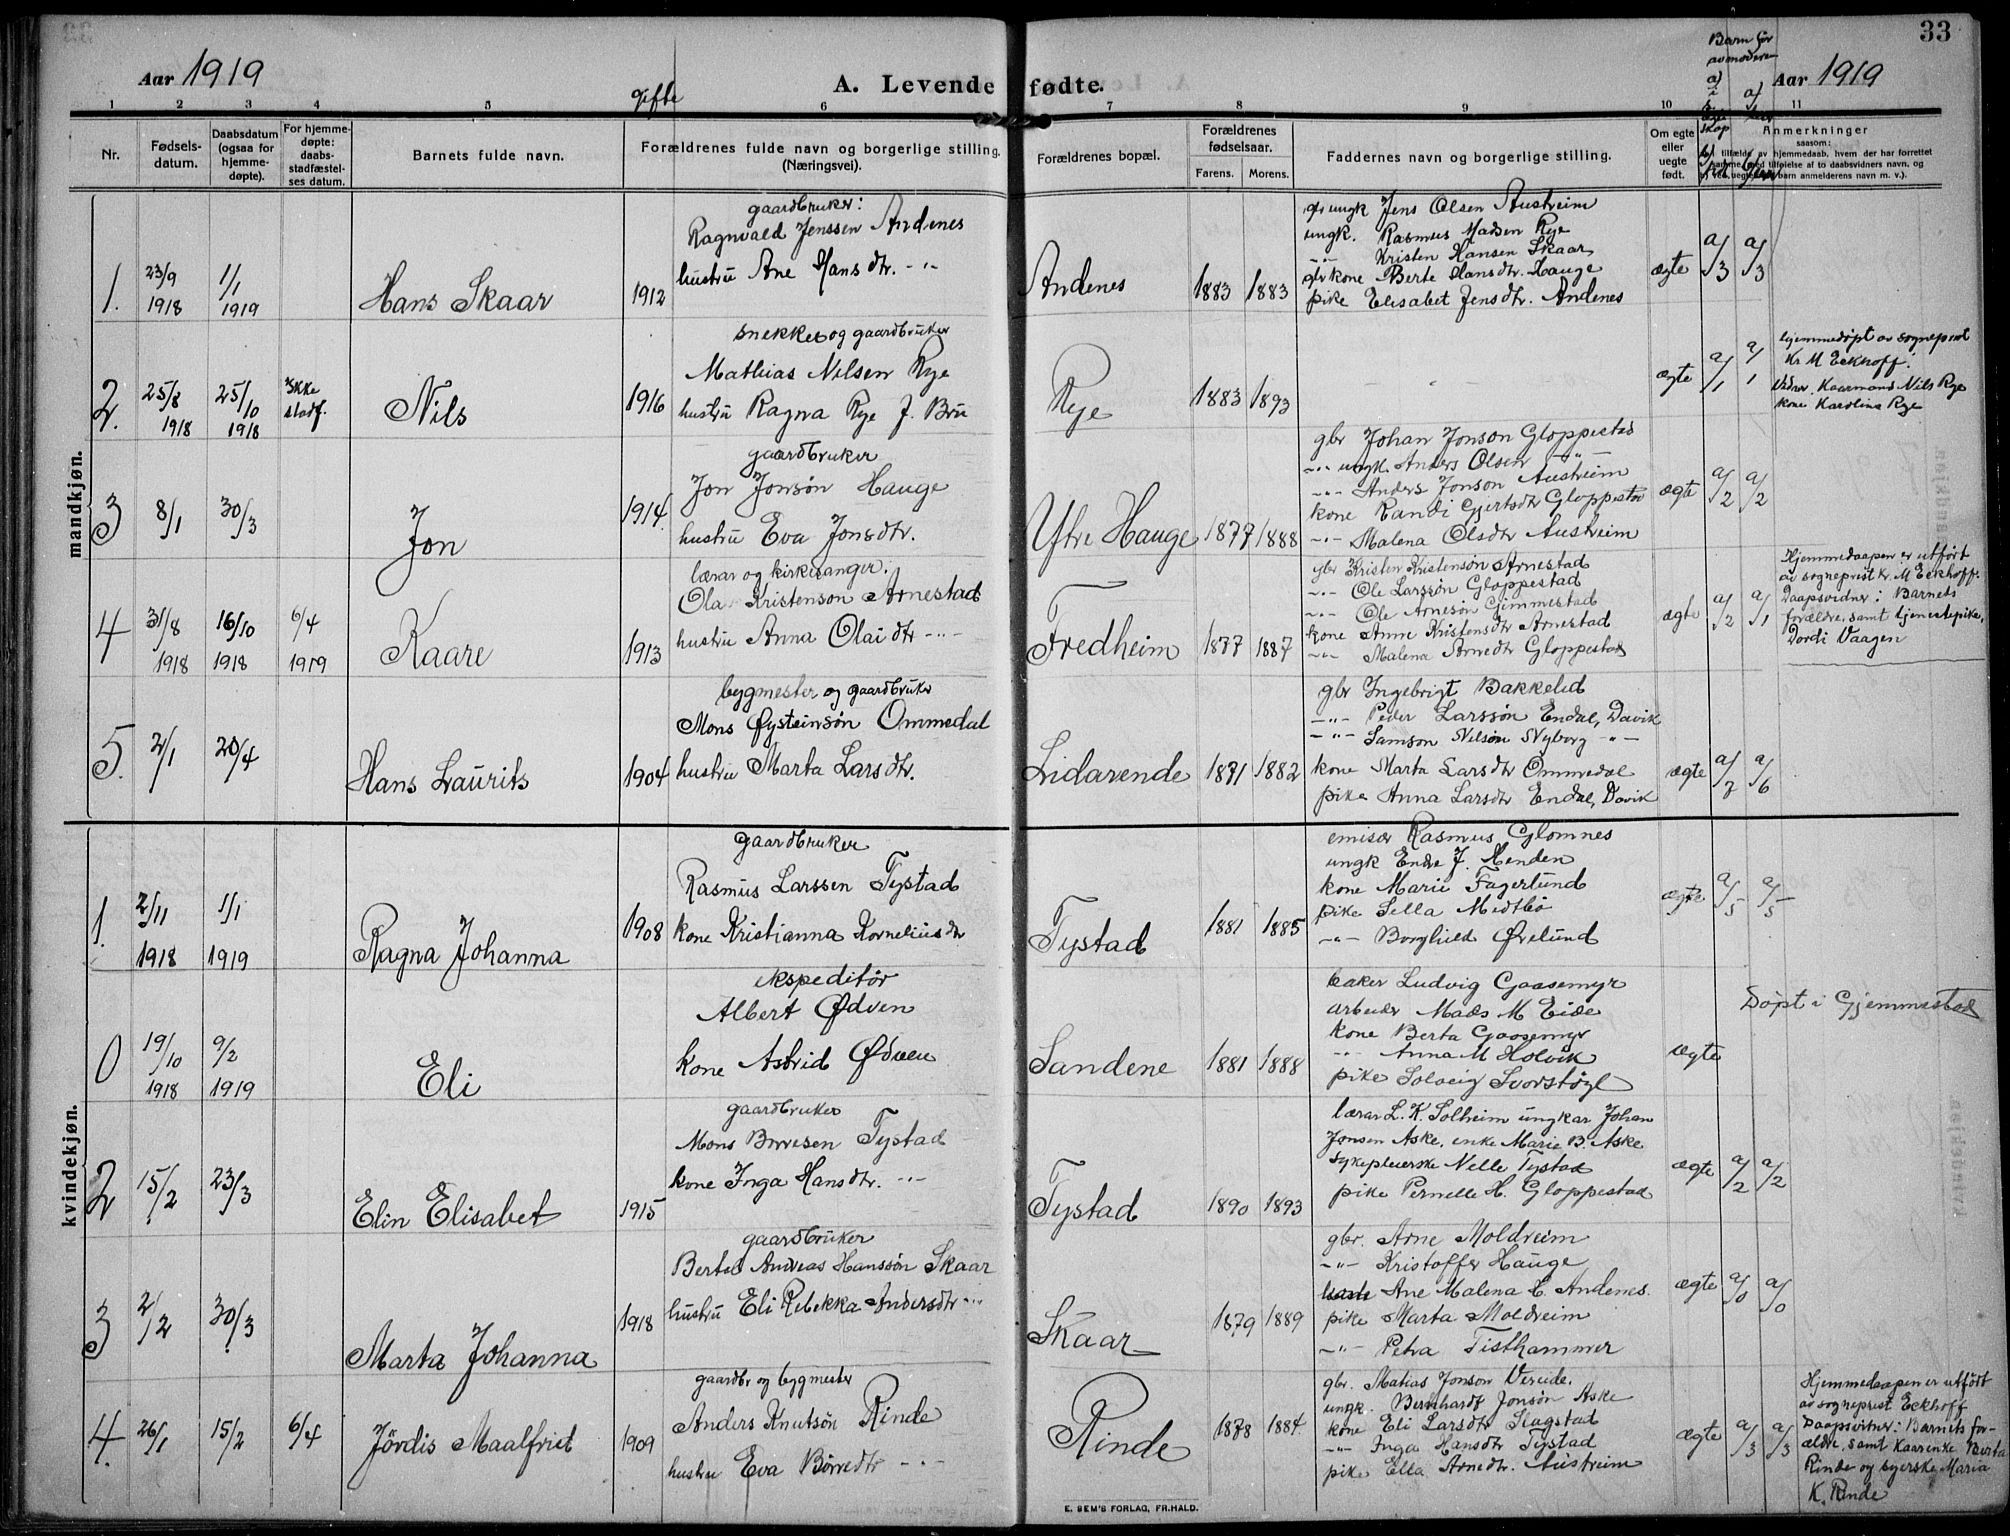 33
Aar 1919
A. Levende fødte.
Aar 1919
Barn før
av moderen
1 2 3 4 5 gifte 6 7 8 9 10 11
Nr.
Fødsels-
datum.
Daabsdatum
(ogsaa for
hjemme-
døpte).
For hjemme-
døpte:
daabs-
stadfæstel-
ses datum.
Barnets fulde navn.
Forældrenes fulde navn og borgerlige stilling.
(Næringsvei).
Forældrenes bopæl.
Forældrenes
fødselsaar.
Farens. Morens.
Faddernes navn og borgerlige stilling.
Om egte
eller
uegte
født.
Anmerkninger
saasom:
tilfælde av hjemmedaab, hvem der har forrettet
samme med tilføielse af to daabsvidners navn, og
ved uegte barn anmelderens navn m. v.).
mandkjøn.
1. 23/9 1918 1/1 1919 Hans Skaar 1912
gaardbruker:
Ragnvald Jenssen Andenes
hustru Ane Hansdtr. -"-
Andenes 1883 1883
gbr ungk Jens Olsen Austreim
ungk. Rasmus Madsen Rye
-"- Kristen Hansen Skaar
gbr kone Berte Hansdtr. Hauge
pike Elisabet Jensdtr. Andenes
ægte a/3 a/3
2. 25/8 1918 25/10 1918 Ikke stadf. Nils 1916
snekker og gaardbruker
Mathias Nilsen Rye
hustru Ragna Rye f. Bru
Rye 1883 1893
ægte a/1 a/1
hjemmedøpt av sogneprest
Kr. M Eckhoff.
Vidner. Kaarmand Nils Rye
kone Karolina Rye
3 8/1 30/3 Jon 1914.
gaardbruker
Jon Jonsøn Hauge
hustru Eva Jonsdtr.
Ytre Hauge 1877 1888
gbr Johan Jonson Gloppestad
-"- ungk. Anders Olsen "
-"- Anders Jonson Austreim
kone Randi Gjertsdtr Gloppestad
-"- Malena Olsdtr Austreim
ægte a/2 a/2
4 31/8 1918 16/10 1918 6/4 1919 Kaare 1913
lærar og kirkesanger.
Ola Kristenson Arnestad
hustru Anna Olai dtr -"-
Fredheim 1877 1887
gbr Kristen Kristensøn Arnestad
-"- Ole Larssøn Gloppestad
-"- Ole Arnesøn Gjemmestad
kone Anne Kristensdtr Arnestad
-"- Malena Arnedtr Gloppestad
ægte a/2 a/1
Hjemmedaapen er utført
av sogneprest Kr. M Eckhoff.
Daapsvidner: Barnets
forældre, samt tjenestepike,
Dordi Vaagen
5. 2/1 20/4 Hans Laurits 1904
bygmester og gaardbruker
Mons Øysteinsøn Ommedal
hustru Marta Larsdtr.
Lidarende 1871 1882
gbr Ingebrigt Bakkelid
-"- Peder Larssøn Endal, Davik
-"- Samson Nilsøn Nyborg -"-
kone Marta Larsdtr Ommedal
pike Anna Larsdtr Endal, Davik
ægte a/7 a/6
kvindekjøn.
1. 2/11 1918 1/1 1919 Ragna Johanna 1908
gaardbruker
Rasmus Larssen Tystad
kone Kristianna Korneliusdtr
Tystad 1881 1885
emisær Rasmus Glomnes
ungk Endre J. Henden
kone Marie Fagerlund
pike Sella Midtbø
-"- Borghild Ørelund
ægte a/5 a/5
0 19/10 1918 9/2 1919 Eli
ekspeditør
Albert Ødven
kone Astrid Ødven
Sandene 1881 1888
baker Ludvig Gaasemyr
arbeider Mads M Eide
kone Berta Gaasemyr
-"- Anna M Holvik
pike Solveig Svorstøyl
ægte
Døpt i Gjemmestad
2 15/2 23/3 Elin Elisabet 1915
gaardbruker
Mons Børresen Tystad
kone Inga Hansdtr. -"-
Tystad 1890 1893
lærar L. K. Solheim ungkar Johan
Jonsen Aske, enke Marie B. Aske
sykepleierske Nelle Tystad
pike Pernelle H. Gloppestad
ægte a/2 a/2
3 2/2 30/3 Marta Johanna 1918
gaardbruker
Bertel Andreas Hanssøn Skaar
hustru Eli Rebekka Andersdtr -"-
Skaar 1879 1889
gbr. Arne Moldreim
-"- Kristoffer Hauge
Ane Malena C. Andenes.
pike Marta Moldreim
-"- Petra Tisthammer
ægte a/0 a/0
4. 26/1 15/2 6/4 Jördis Maalfrid 1909
gaardbr og bygmester
Anders Knutsøn Rinde
hustru Eva Børredtr -"-
Rinde 1878 1884.
gbr. Matias Jonson Vereide.
ungk. Bernhardt Jonsøn Aske
kone Eli Larsdtr Slagstad
-"- Inga Hansdtr Tystad
pike Ella Arnedtr. Austreim
ægte a/3 a/3
Hjemmedaapen er utført
av sogneprest Eckhoff
Daapsvitner: Barnets for-
ældre, samt kaarenke Berta
Rinde og syerske Maria
K. Rinde
E. SEM'S FORLAG, FR.HALD.